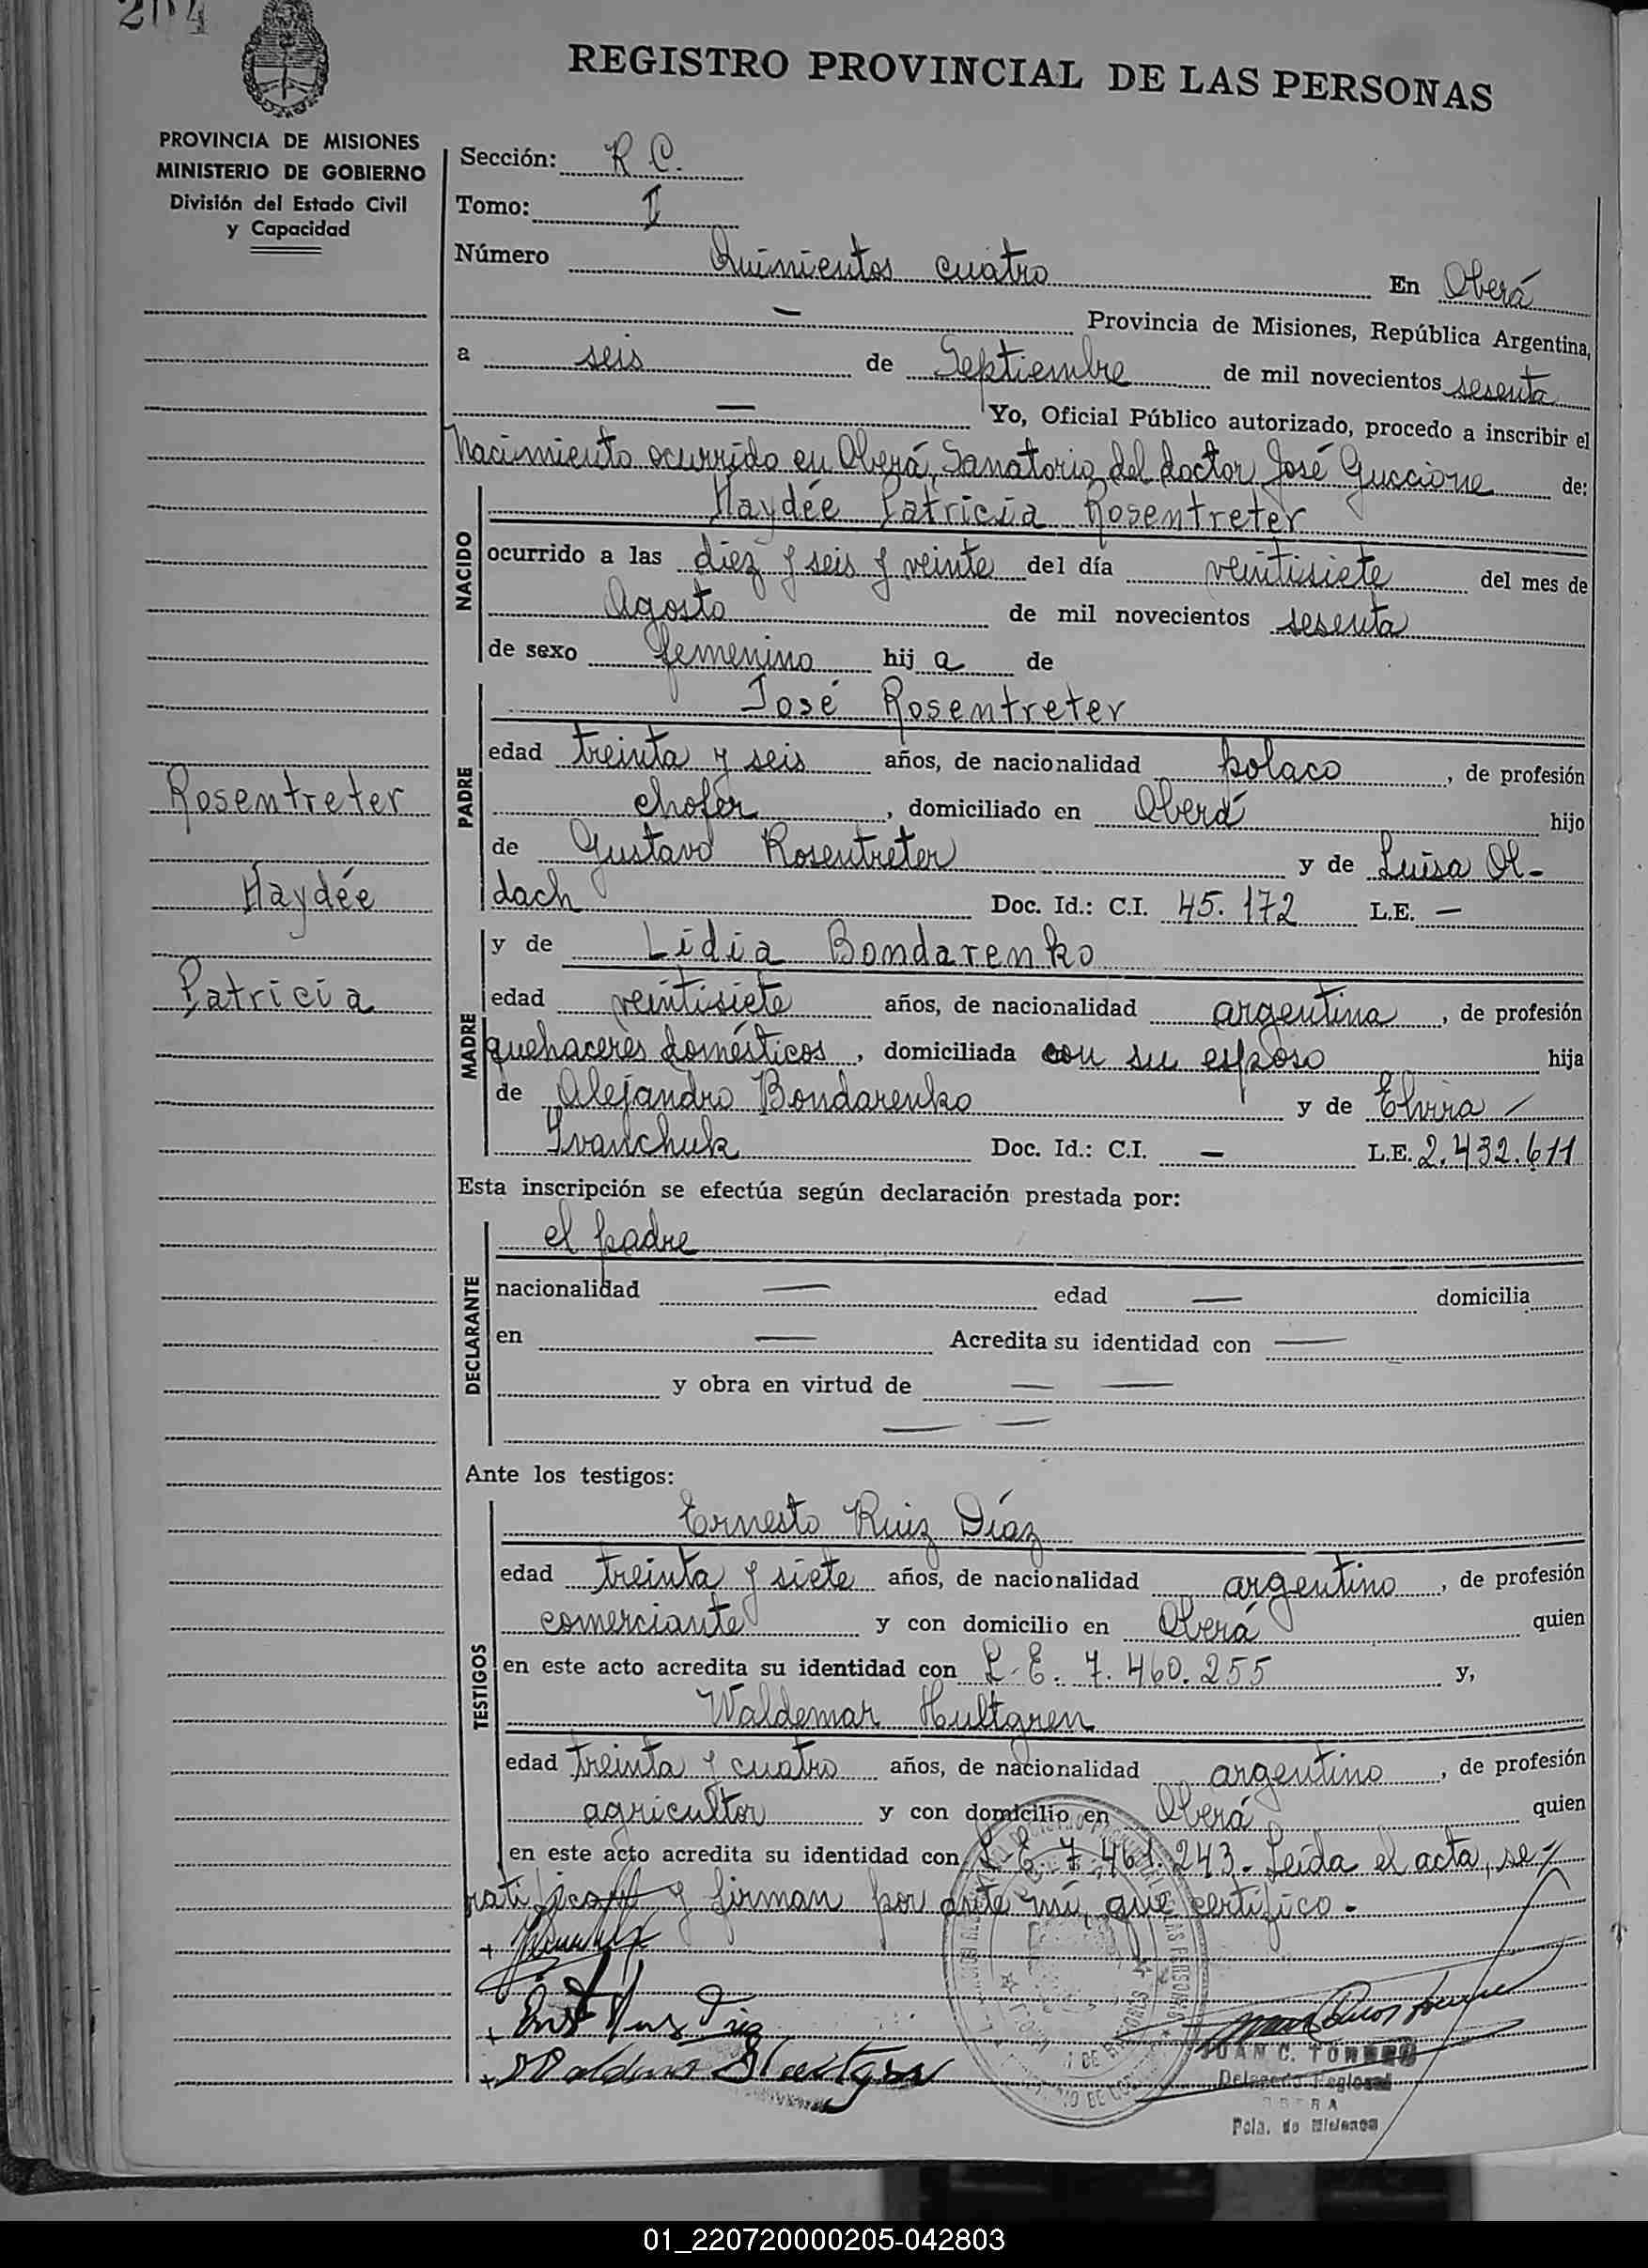 204
REGISTRO PROVINCIAL DE LAS PERSONAS
PROVINCIA DE MISIONES
MINISTERIO DE GOBIERNO
División del Estado Civil
y Capacidad
Sección: R C.
Tomo: I
Número Quinientos cuatro En Oberá
— Provincia de Misiones, República Argentina,
a seis de Septiembre de mil novecientos sesenta
— Yo, Oficial Público autorizado, procedo a inscribir el
Nacimiento ocurrido en Oberá, Sanatorio del doctor José Guccione de:
NACIDO
Haydée Patricia Rosentreter
ocurrido a las diez y seis y veinte del día veintisiete del mes de
Agosto de mil novecientos sesenta
de sexo femenino hij a de
PADRE
José Rosentreter
edad treinta y seis años, de nacionalidad polaco, de profesión
chofer, domiciliado en Oberá hijo
de Gustavo Rosentreter y de Luisa Ol-
dach Doc. Id.: C.I. 45.172 L.E. —
Rosentreter
Haydée
Patricia
MADRE
y de Lidia Bondarenko
edad veintisiete años, de nacionalidad argentina, de profesión
quehaceres domésticos, domiciliada con su esposo hija
de Alejandro Bondarenko y de Elvira
Ivanchuk Doc. Id.: C.I. — L.E. 2.432.611
Esta inscripción se efectúa según declaración prestada por:
DECLARANTE
el padre
nacionalidad — edad — domicilia
en — Acredita su identidad con —
y obra en virtud de — —
— —
Ante los testigos:
TESTIGOS
Ernesto Ruiz Díaz
edad treinta y siete años, de nacionalidad argentino, de profesión
comerciante y con domicilio en Oberá quien
en este acto acredita su identidad con L.E. 7.460.255 y,
Waldemar Hultgren
edad treinta y cuatro años, de nacionalidad argentino, de profesión
agricultor y con domicilio en Oberá quien
en este acto acredita su identidad con L.E. 7.461.243.- Leída el acta, se
ratifican y firman por ante mí, que certifico.-
JUAN C. TORRES
Delegado Regional
OBERA
Pcia. de Misiones
01_220720000205-042803